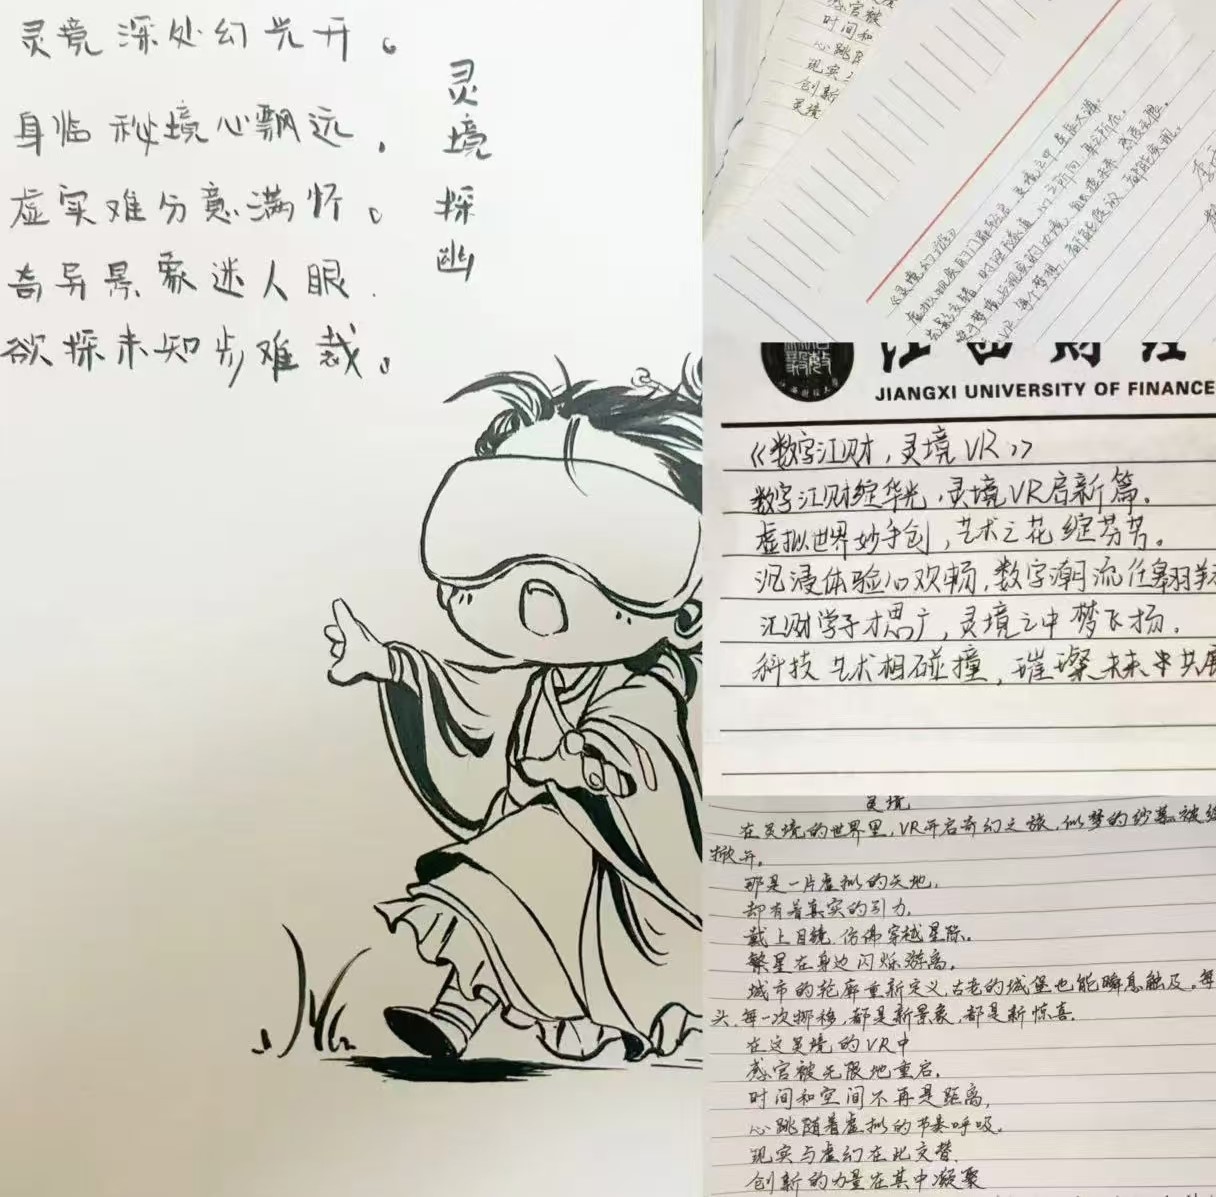 灵境深处幻光开。
身临秘境心飘远,
虚实难分意满怀。
奇异景象迷人眼,
欲探未知步难裁。
灵境探幽
感官被
时间和
心跳随
现实与
创新
灵境
《灵境幻游》
JIANGXI UNIVERSITY OF FINANCE
《数字江财,灵境VR》
数字江财绽华光,灵境VR启新篇。
虚拟世界妙手创,艺术之花绽芬芳。
沉浸体验心欢畅,数字潮流任翱翔
江财学子才思广,灵境之中梦飞扬。
科技艺术相碰撞,璀璨未来共展
灵境
在灵境的世界里,VR开启奇幻之旅,似梦的纱幕被缓
掀开。
那是一片虚拟的天地,
却有着真实的引力。
戴上目镜,仿佛穿越星际。
繁星在身边闪烁游离。
城市的轮廓重新定义,古老的城堡也能瞬息触及。每
头,每一次挪移,都是新景象,都是新惊喜。
在这灵境的VR中
感官被无限地重启。
时间和空间不再是距离,
心跳随着虚拟的节奏呼吸。
现实与虚幻在此交替,
创新的力量在其中凝聚